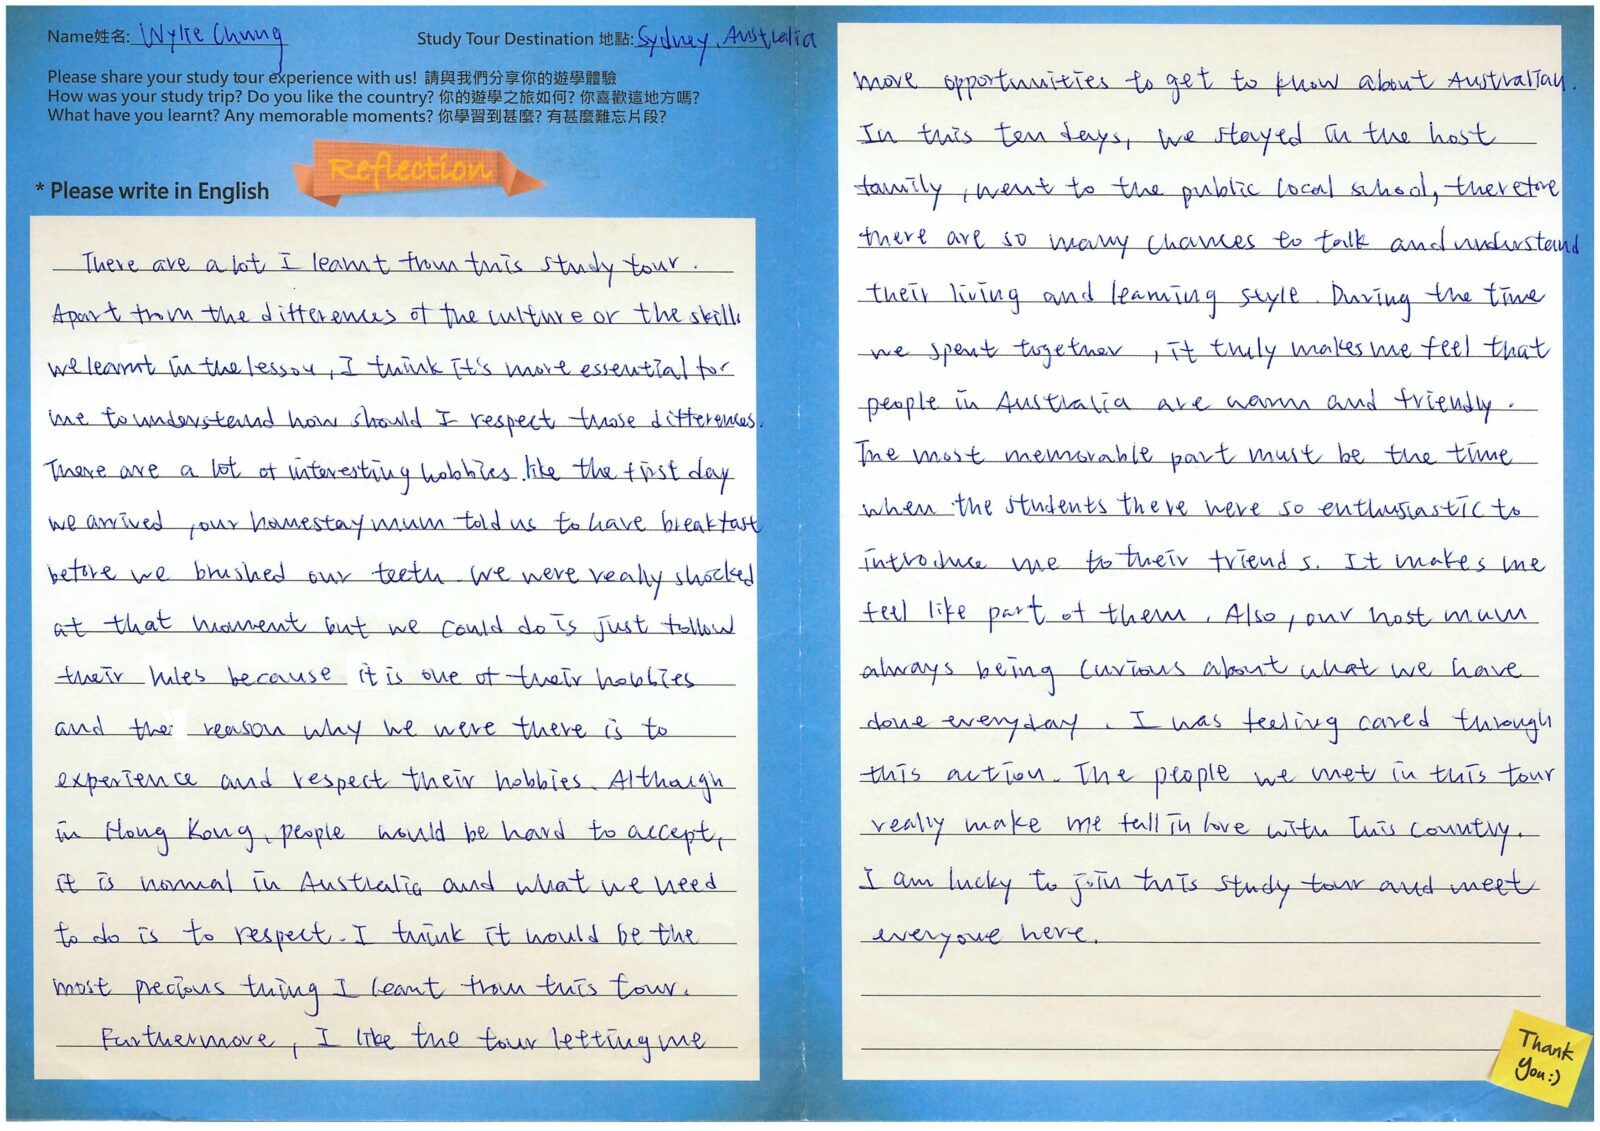 Name姓名: Wylie Chung
Study Tour Destination 地點: Sydney, Australia
Please share your study tour experience with us! 請與我們分享你的遊學體驗
How was your study trip? Do you like the country? 你的遊學之旅如何? 你喜歡這地方嗎?
What have you learnt? Any memorable moments? 你學習到甚麼? 有甚麼難忘片段?
Reflection
* Please write in English
There are a lot I learnt from this study tour.
Apart from the differences of the culture or the skills
we learnt in the lesson, I think it's more essential for
me to understand how should I respect those differences.
There are a lot of interesting hobbies like the first day
we arrived, our homestay mum told us to have breakfast
before we brushed our teeth. We were really shocked
at that moment but we could do is just follow
their rules because it is one of their hobbies
and the reason why we were there is to
experience and respect their hobbies. Although
in Hong Kong, people would be hard to accept,
it is normal in Australia and what we need
to do is to respect. I think it would be the
most precious thing I leant from this tour.
Furthermore, I like the tour letting me
more opportunities to get to know about Australian.
In this ten days, we stayed in the host
family, went to the public local school, therefore
there are so many chances to talk and understand
their living and learning style. During the time
we spent together, it truly makes me feel that
people in Australia are warm and friendly.
The most memorable part must be the time
when the students there were so enthusiastic to
introduce me to their friends. It makes me
feel like part of them. Also, our host mum
always being curious about what we have
done everyday. I was feeling cared through
this action. The people we met in this tour
really make me fall in love with this country.
I am lucky to join this study tour and meet
everyone here.
Thank
you:)